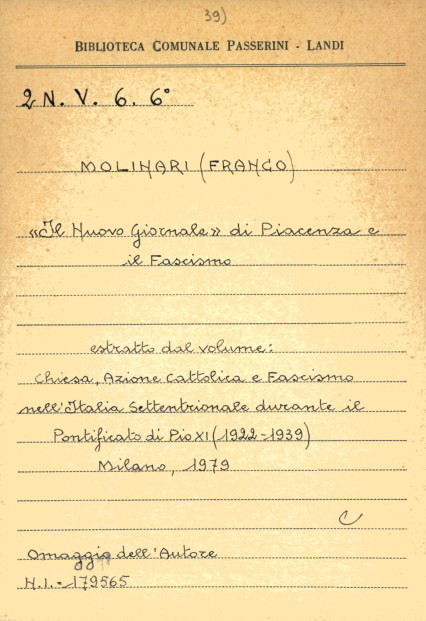 39)
BIBLIOTECA COMUNALE PASSERINI - LANDI
2 N. V. 6. 6°
MOLINARI (FRANCO)
«Il Nuovo Giornale» di Piacenza e
il Fascismo
estratto dal volume:
Chiesa, Azione Cattolica e Fascismo
nell'Italia Settentrionale durante il
Pontificato di Pio XI (1922-1939)
Milano, 1979
C
Omaggio dell'Autore
N.I.- 179565